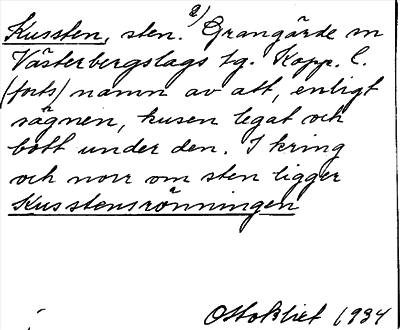 Kussten, sten. a) Grangärde sn
Västerbergslags tg. Kopp. l.
(forts) namn av att, enligt
sägnen, kusen legat och
bott under den. I kring
och norr om sten ligger
Kusstensrönningen
Otto Blixt 1934